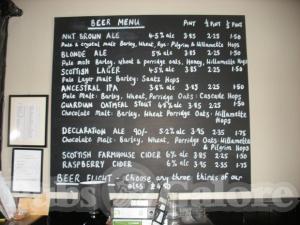 BEER MENU PINT ½ PINT ⅓ PINT
NUT BROWN ALE 4·5% alc 3·85 2·25 1·50
Pale & crystal malt Barley, Wheat, Rye: Pilgrim & Willamette Hops
BLONDE ALE 5% alc 3·85 2·25 1·50
Pale malt Barley, wheat & porridge oats, Honey, Willamette Hops
SCOTTISH LAGER 4·5% alc 3·85 2·25 1·50
Pale Lager malt Barley: Saaz Hops
ANCESTRAL IPA alc 3·85 2·25 1·50
Pale Malt: Barley, Wheat, Porridge Oats: Cascade Hops
GUARDIAN OATMEAL STOUT 4·8% alc 3·85 2·25 1·50
Chocolate Malt: Barley, Wheat, Porridge Oats: Willamette Hops
DECLARATION ALE 90/- 5·2% alc 3·95 2·35 1·75
Chocolate Malt: Barley, Wheat, Porridge Oats: Willamette
& Pilgrim Hops
SCOTTISH FARMHOUSE CIDER 6% alc 3·85 2·25 1·50
RASPBERRY CIDER 4% alc 3·85 2·25 1·50
BEER FLIGHT - Choose any three thirds of our